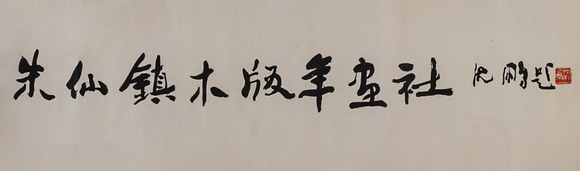 朱仙鎮木版年画社 沈鹏题